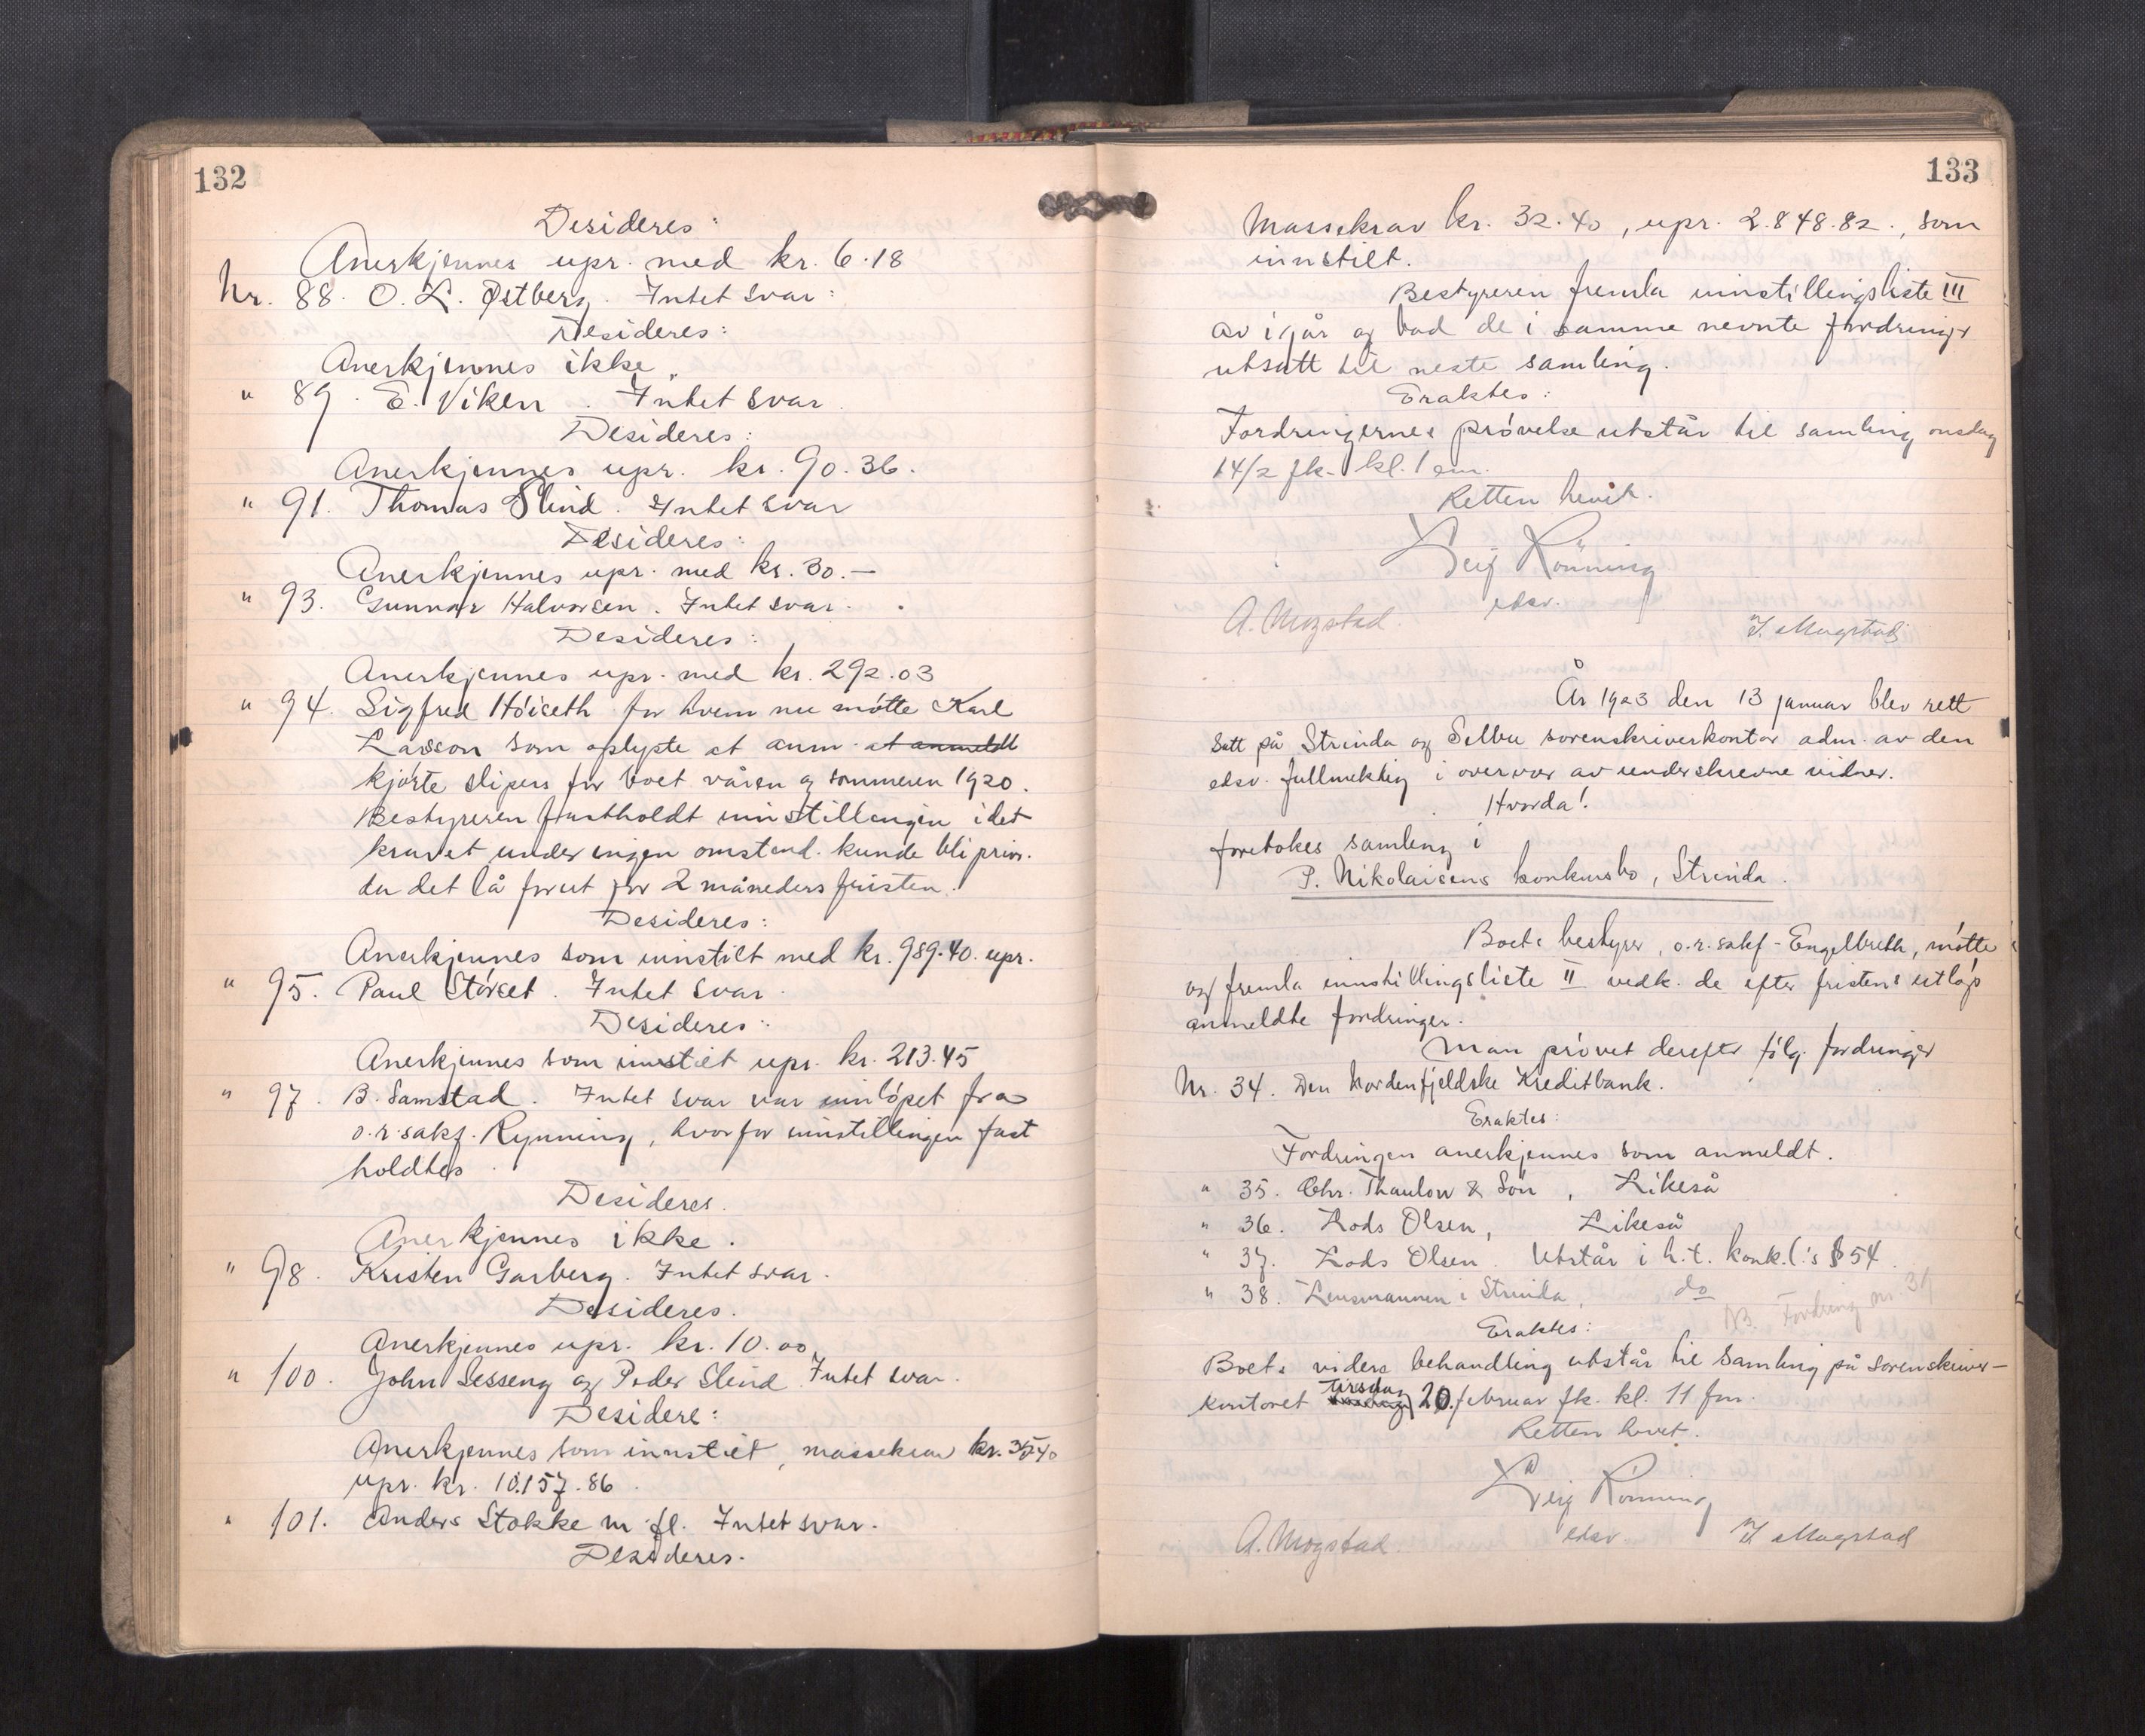 132
Desideres:
Anerkjennes upr. med kr. 6.18
Nr. 88. O. L. Østberg. Intet svar:
Desideres:
Anerkjennes ikke.
" 89. E. Viken. Intet svar.
Desideres:
Anerkjennes upr. kr. 90.36.
" 91. Thomas Slind. Intet svar
Desideres:
Anerkjennes upr. med kr. 30.—
" 93. Gunnar Halvorsen. Intet svar.
Desideres:
Anerkjennes upr. med kr. 292.03
" 94. Sigfred Höiseth for hvem nu møtte Karl
Larsson som oplyste at anm. at anmeldt
kjørte slipers for boet våren og sommeren 1920.
Bestyreren fastholdt innstillingen idet
kravet under ingen omstend. kunde bli priv.
da det lå forut for 2 måneders fristen.
Desideres:
Anerkjennes som innstilt med kr. 989.40. upr.
" 95. Paul Störset. Intet svar.
Desideres:
Anerkjennes som innstilt upr. kr. 213.45
" 97. B. Samstad. Intet svar var innløpet fra
o.r.sakf. Rynning, hvorfor innstillingen fast
holdtes.
Desideres.
Anerkjennes ikke.
" 98. Kristen Garberg. Intet svar.
Desideres.
Anerkjennes upr. kr. 10.00.
" 100. John Sesseng og Peder Slind. Intet svar.
Desidere:
Anerkjennes som innstilt, massekrav kr.
upr. kr. 10.157.86
" 101. Anders Stokke m. fl. Intet svar.
Desideres.
133
Massekrav kr. 32.40, upr. 2.848.82., som
innstilt.
Bestyreren fremla innstillingsliste III
av igår og bad de i samme nevnte fordringer
utsatt til neste samling.
Eraktes:
Fordringernes prøvelse utstår til samling onsdag
14/2 fk. kl. 1 em.
Retten hevit.
Leif Rönning
edsv.
A. Mogstad. I. Mogstad
År 1923 den 13 januar blev rett
satt på Strinda og Selbu sorenskriverkontor adm. av den
edsv. fullmektig i overvær av underskrevne vidner.
Hvorda!
foretokes samling i
P. Nikolaisens konkursbo, Strinda.
Boets bestyrer, o.r.sakf. Engelbreth, møtte
og fremla innstillingsliste II vedk. de efter fristens utløp
anmeldte fordringer.
Man prøvet derefter følg. fordringer
Nr. 34. Den Nordenfjeldske Kreditbank.
Eraktes:
Fordringen anerkjennes som anmeldt.
" 35. Chr. Thaulow & Søn, Likeså
" 36. Lods Olsen, Likeså
" 37. Lods Olsen. Utstår i h.t. konk.l.'s § 54.
" 38. Lensmannen i Strinda, do
NB. Fordring nr. 31
Eraktes:
Boets videre behandling utstår til samling på sorenskriver-
kontoret tirsdag 20. februar fk. kl. 11 fm.
Retten hevet.
Leif Rönning
edsv.
A. Mogstad I. Mogstad